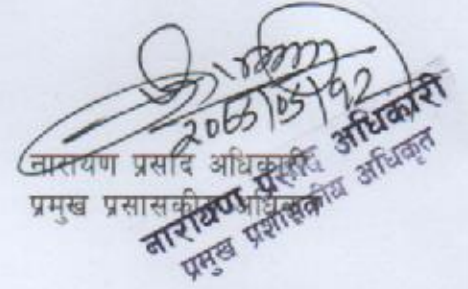 नारायण प्रसाद अधिकारी
प्रमुख प्रसासकीय अधिकृत
नारायण प्रसाद अधिकारी
प्रमुख प्रशासकीय अधिकृत